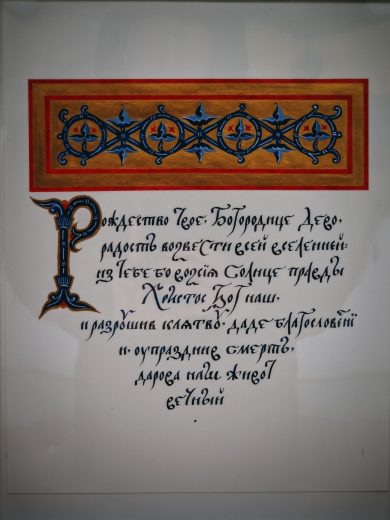 Рождество Твое, Богородице Дево,
радость возвести всей вселенней:
из Тебе бо возсія Солнце правды
Христос Бог наш,
и разрꙋшив клятвꙋ, даде благословенїе
и, оупразднив смерть,
дарова нам живот
вечный
.